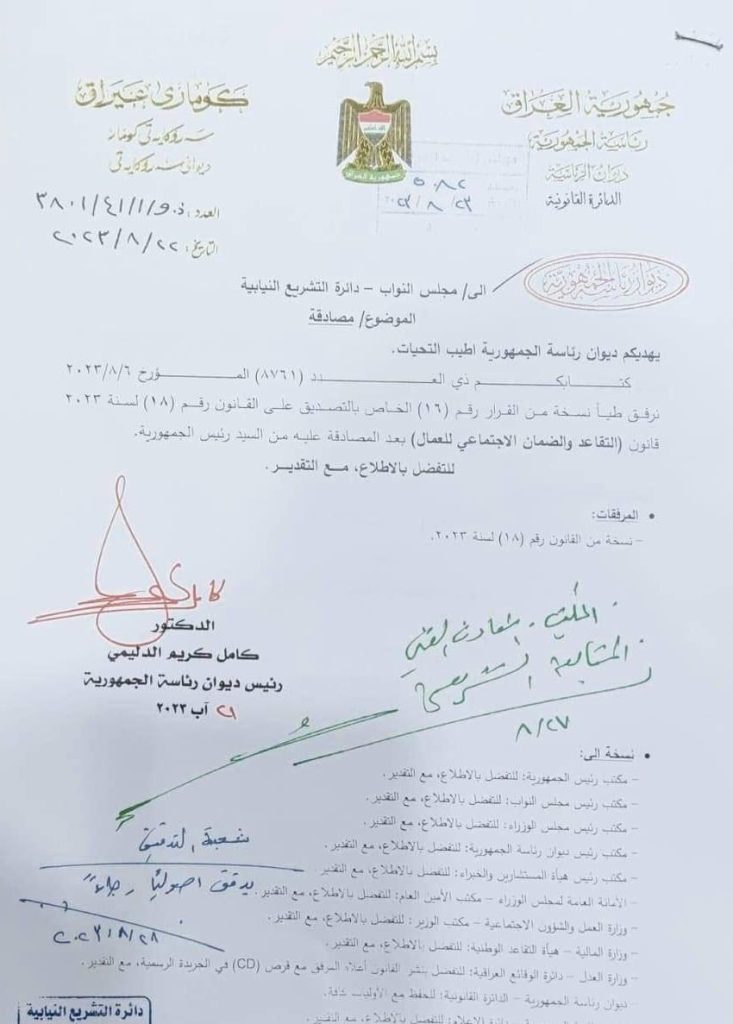 بسم الله الرحمن الرحيم
جمهورية العراق
رئاسة الجمهورية
ديوان الرئاسة
الدائرة القانونية
كۆماری عێراق
سەرۆکایەتی کۆمار
دیوانی سەرۆکایەتی
العدد: ذ.و/١/٤١/٣٨٠١
التاريخ: ٢٠٢٣/٨/٢٢
٥٠٨٢
٢٠٢٣/٨/٢٣
جمهورية العراق
ديوان رئاسة الجمهورية
الى/ مجلس النواب – دائرة التشريع النيابية
الموضوع/ مصادقة
يهديكم ديوان رئاسة الجمهورية اطيب التحيات.
كتابكم ذي العدد (٨٧٦١) المؤرخ ٢٠٢٣/٨/٦
نرفق طياً نسخة من القرار رقم (١٦) الخاص بالتصديق على القانون رقم (١٨) لسنة ٢٠٢٣
قانون (التقاعد والضمان الاجتماعي للعمال) بعد المصادقة عليه من السيد رئيس الجمهورية.
للتفضل بالاطلاع، مع التقدير.
• المرفقات:
– نسخة من القانون رقم (١٨) لسنة ٢٠٢٣.
الدكتور
كامل كريم الدليمي
رئيس ديوان رئاسة الجمهورية
٢١ آب ٢٠٢٣
٨/٢٧
• نسخة الى:
– مكتب رئيس الجمهورية: للتفضل بالاطلاع، مع التقدير.
– مكتب رئيس مجلس النواب: للتفضل بالاطلاع، مع التقدير.
– مكتب رئيس مجلس الوزراء: للتفضل بالاطلاع، مع التقدير.
– مكتب رئيس ديوان رئاسة الجمهورية: للتفضل بالاطلاع، مع التقدير.
– مكتب رئيس هيأة المستشارين والخبراء: للتفضل بالاطلاع، مع التقدير.
– الأمانة العامة لمجلس الوزراء – مكتب الأمين العام: للتفضل بالاطلاع، مع التقدير.
– وزارة العمل والشؤون الاجتماعية – مكتب الوزير: للتفضل بالاطلاع، مع التقدير.
– وزارة المالية – هيأة التقاعد الوطنية: للتفضل بالاطلاع، مع التقدير.
– وزارة العدل – دائرة الوقائع العراقية: للتفضل بنشر القانون أعلاه المرفق مع قرص (CD) في الجريدة الرسمية، مع التقدير.
– ديوان رئاسة الجمهورية – الدائرة القانونية: للحفظ مع الأوليات كافة.
دائرة الاعلام: للتفضل بالاطلاع، مع التقدير.
شعبة التدقيق
يدقق اصوليا رجاءً
٢٠٢٣/٨/٢٨
دائرة التشريع النيابية